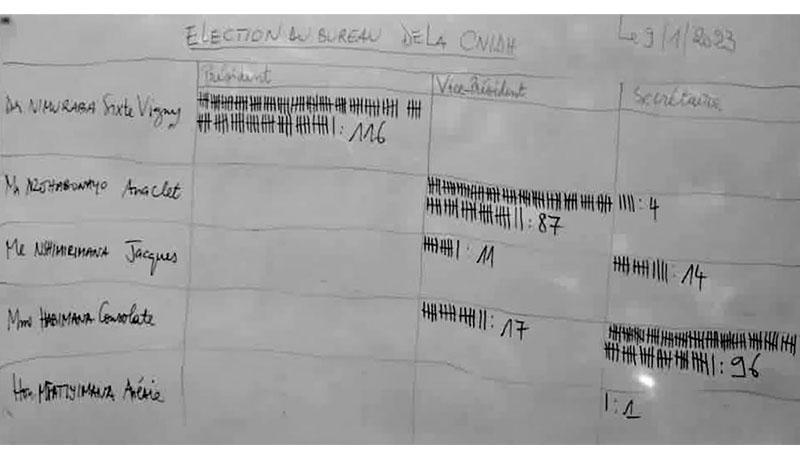 ELECTION DU BUREAU DE LA CNIDH Le 9/1/2023
Président Vice-Président Secrétaire
Dr. NIMURABA Sixte Vigny : 116
Anaclet : 87 : 4
Me NSHIMIRIMANA Jacques : 11 : 14
Mme HABIMANA Consolate : 17 : 96
Hon. : 1